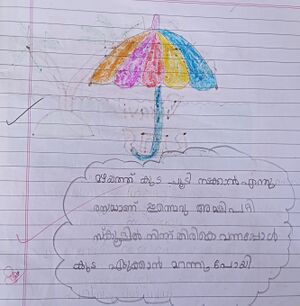 മഴയത്ത് കുട ചൂടി നടക്കാൻ എന്തു
രസമാണ് ഇന്നെന്റെ അമ്മ
സ്കൂളിൽ നിന്ന് തിരികെ വന്നപ്പോൾ
കുട എടുക്കാൻ മറന്നു പോയി